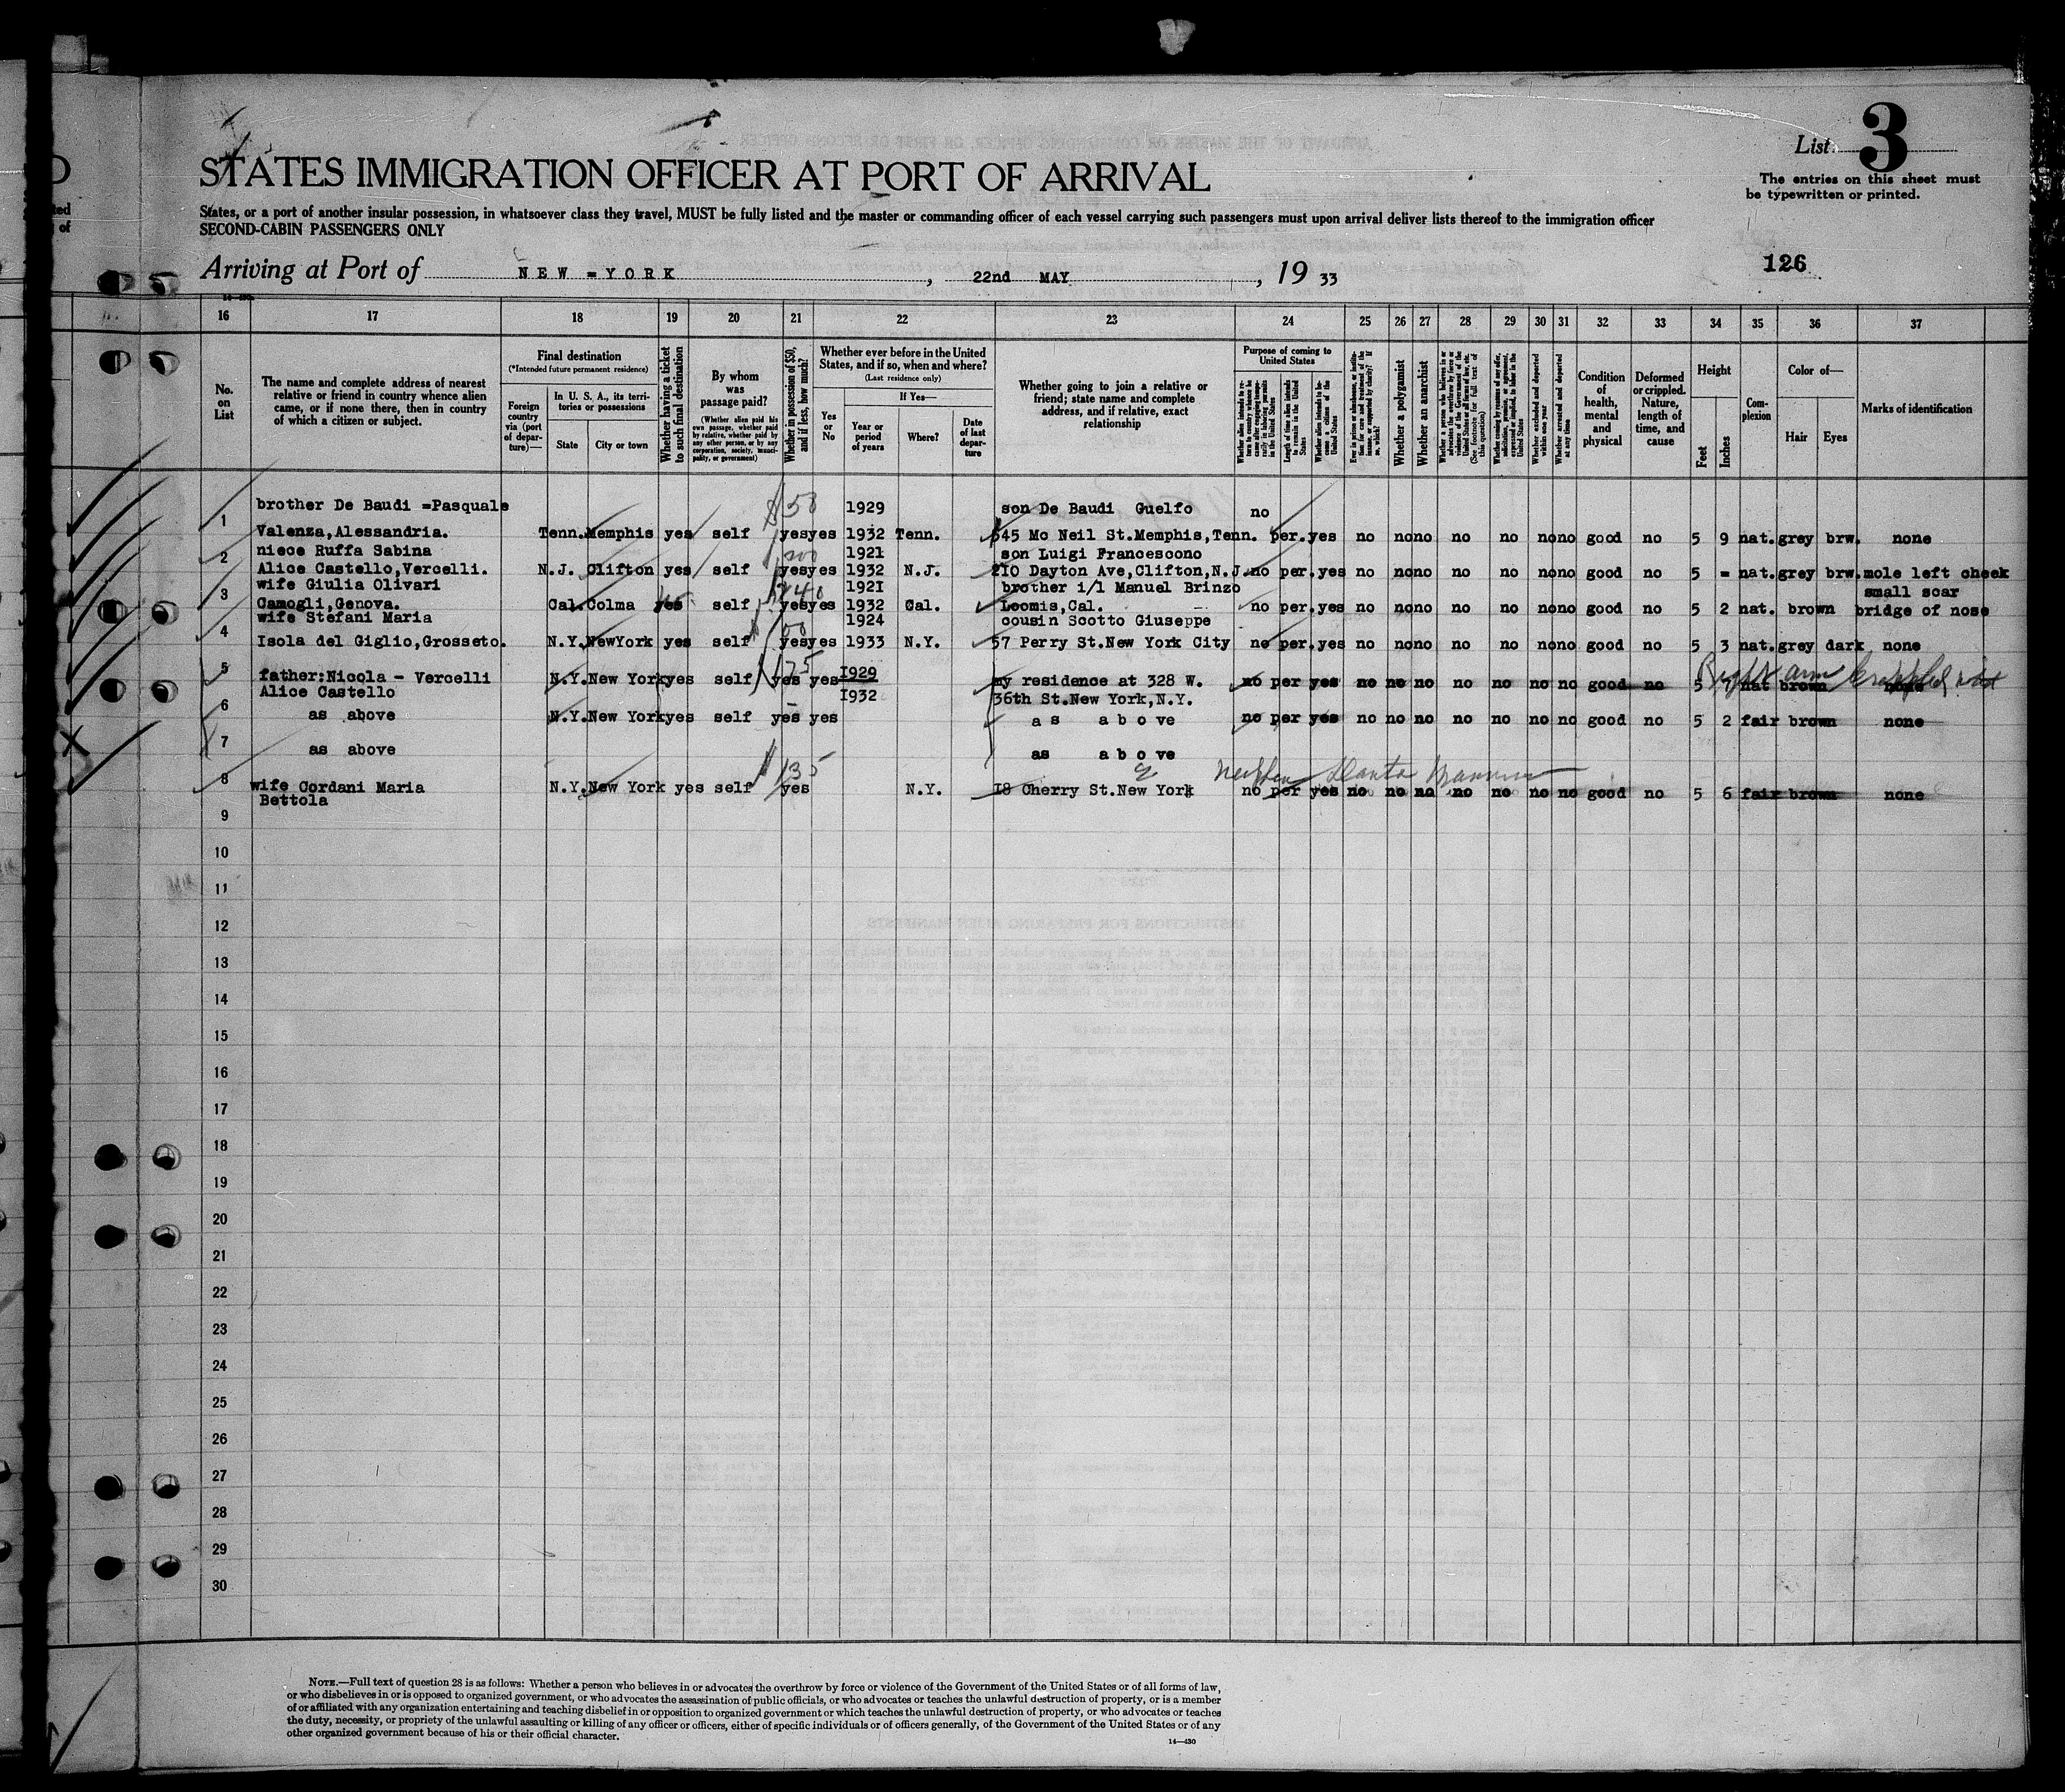 List 3
The entries on this sheet must
be typewritten or printed.
STATES IMMIGRATION OFFICER AT PORT OF ARRIVAL
States, or a port of another insular possession, in whatsoever class they travel, MUST be fully listed and the master or commanding officer of each vessel carrying such passengers must upon arrival deliver lists thereof to the immigration officer
SECOND-CABIN PASSENGERS ONLY
Arriving at Port of NEW =YORK, 22nd MAY, 19 33
126
16 17 18 19 20 21 22 23 24 25 26 27 28 29 30 31 32 33 34 35 36 37
No. on List
The name and complete address of nearest
relative or friend in country whence alien
came, or if none there, then in country
of which a citizen or subject.
Final destination
(*Intended future permanent residence)
Foreign country via (port of departure)—
In U. S. A., its territories or possessions
State
City or town
Whether having a ticket to such final destination
By whom was passage paid?
(Whether alien paid his own passage, whether paid by relative, whether paid by any other person, or by any corporation, society, municipality, or government)
Whether in possession of $50, and if less, how much?
Whether ever before in the United
States, and if so, when and where?
(Last residence only)
Yes or No
If Yes—
Year or period of years
Where?
Date of last departure
Whether going to join a relative or
friend; state name and complete
address, and if relative, exact
relationship
Purpose of coming to United States
Length of time alien intends to remain in the United States
Whether alien intends to become a citizen of the United States
Whether a polygamist
Whether an anarchist
Whether excluded and deported within one year
Whether arrested and deported at any time
Condition of health, mental and physical
Deformed or crippled. Nature, length of time, and cause
Height
Feet
Inches
Complexion
Color of—
Hair
Eyes
Marks of identification
brother De Baudi =Pasquale $50 1929 son De Baudi Guelfo no
1 Valenza,Alessandria. Tenn. Memphis yes self yes yes 1932 Tenn. 545 Mc Neil St.Memphis,Tenn. per. yes no no no no no no no good no 5 9 nat. grey brw. none
niece Ruffa Sabina 1921 son Luigi Francescono
2 Alice Castello,Vercelli. N.J. Clifton yes self yes yes 1932 N.J. 210 Dayton Ave,Clifton,N.J. no per. yes no no no no no no no good no 5 = nat. grey brw. mole left cheek
wife Giulia Olivari 1921 brother i/l Manuel Brinzo small scar
3 Camogli,Genova. Cal. Colma yes self yes yes 1932 Cal. Loomis,Cal. no per. yes no no no no no no no good no 5 2 nat. brown bridge of nose
wife Stefani Maria 1924 cousin Scotto Giuseppe
4 Isola del Giglio,Grosseto. N.Y. NewYork yes self yes yes 1933 N.Y. 57 Perry St.New York City no per. yes no no no no no no no good no 5 3 nat. grey dark none
5 father:Nicola - Vercelli N.Y. New York yes self $175 yes yes 1929 my residence at 328 W. no per yes no no no no no no no good no 5 nat brown none
Right arm crippled
Alice Castello 1932 36th St.New York,N.Y.
6 as above N.Y. New York yes self yes yes as above no per yes no no no no no no no good no 5 2 fair brown none
7 as above as above
$135
8 wife Cordani Maria N.Y. New York yes self yes N.Y. 18 Cherry St.New York no per yes no no no no no no no good no 5 6 fair brown none
Bettola
9
10
11
12
13
14
15
16
17
18
19
20
21
22
23
24
25
26
27
28
29
30
NOTE.—Full text of question 28 is as follows: Whether a person who believes in or advocates the overthrow by force or violence of the Government of the United States or of all forms of law,
or who disbelieves in or is opposed to organized government, or who advocates the assassination of public officials, or who advocates or teaches the unlawful destruction of property, or is a member
of or affiliated with any organization entertaining and teaching disbelief in or opposition to organized government or which teaches the unlawful destruction of property, or who advocates or teaches
the duty, necessity, or propriety of the unlawful assaulting or killing of any officer or officers, either of specific individuals or of officers generally, of the Government of the United States or of any
other organized government because of his or their official character.
14—430